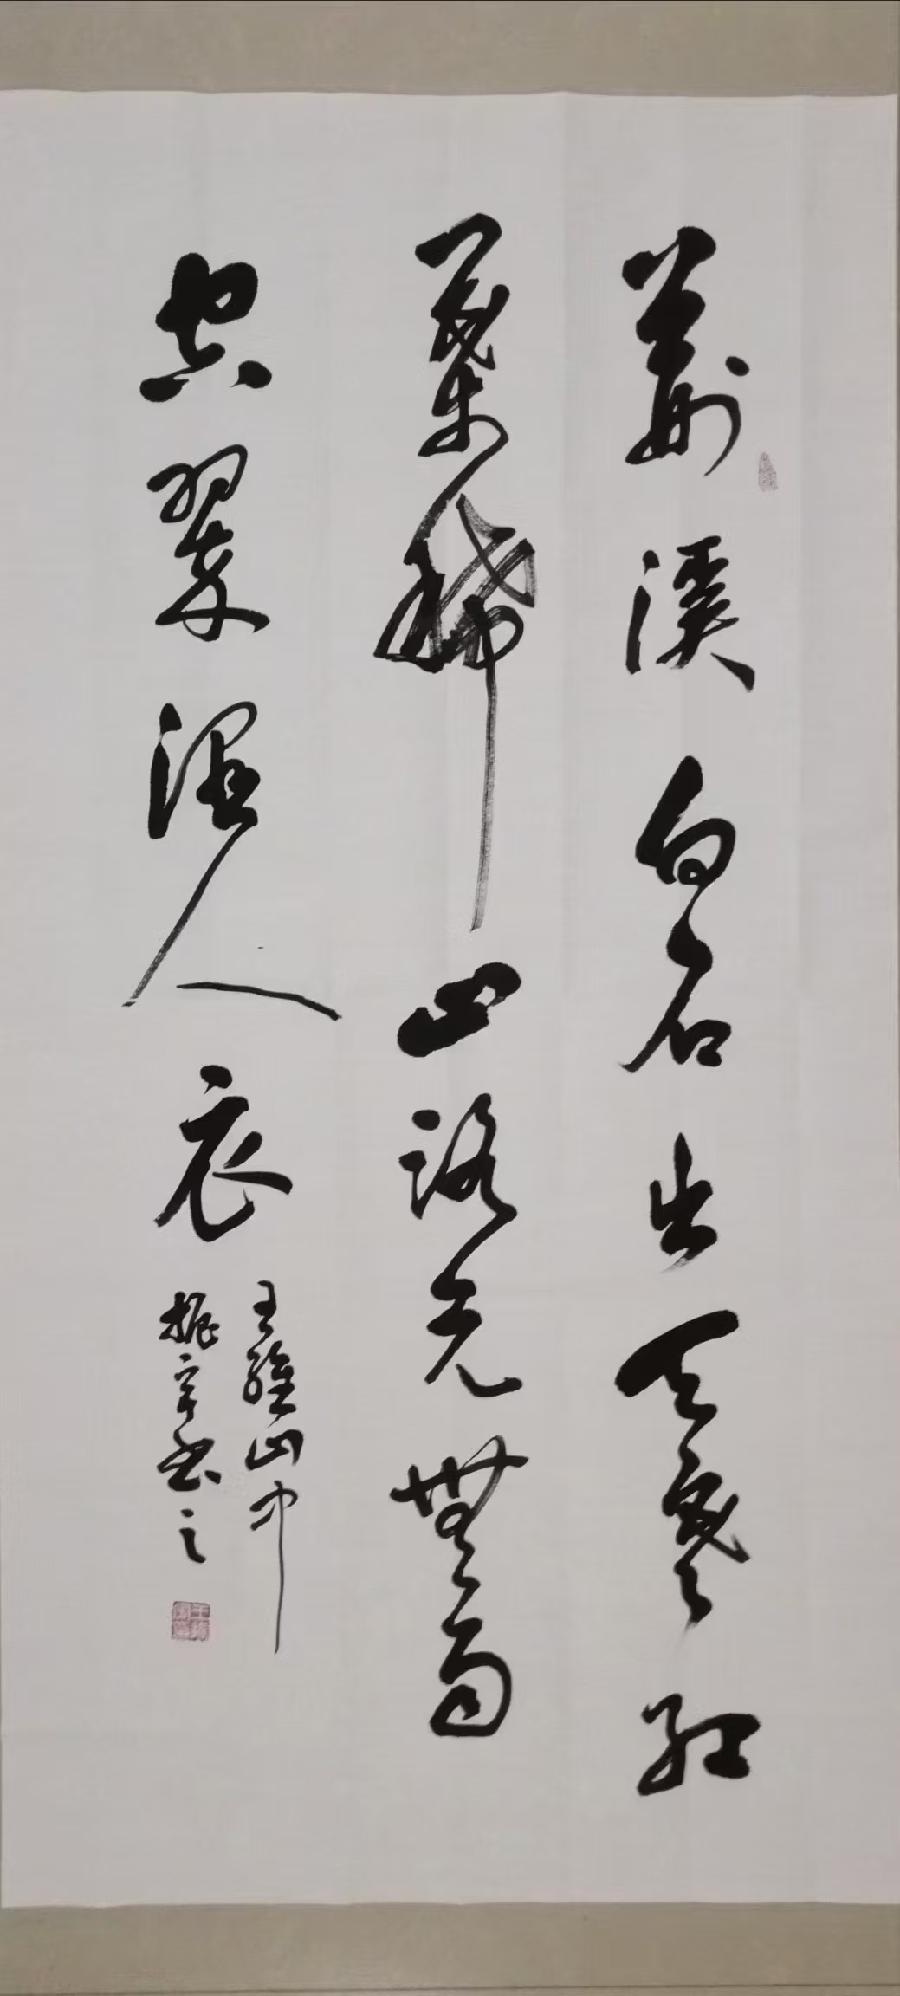 荆溪白石出天寒红
葉稀山路元無雨
空翠湿人衣
王維山中
振宇书之